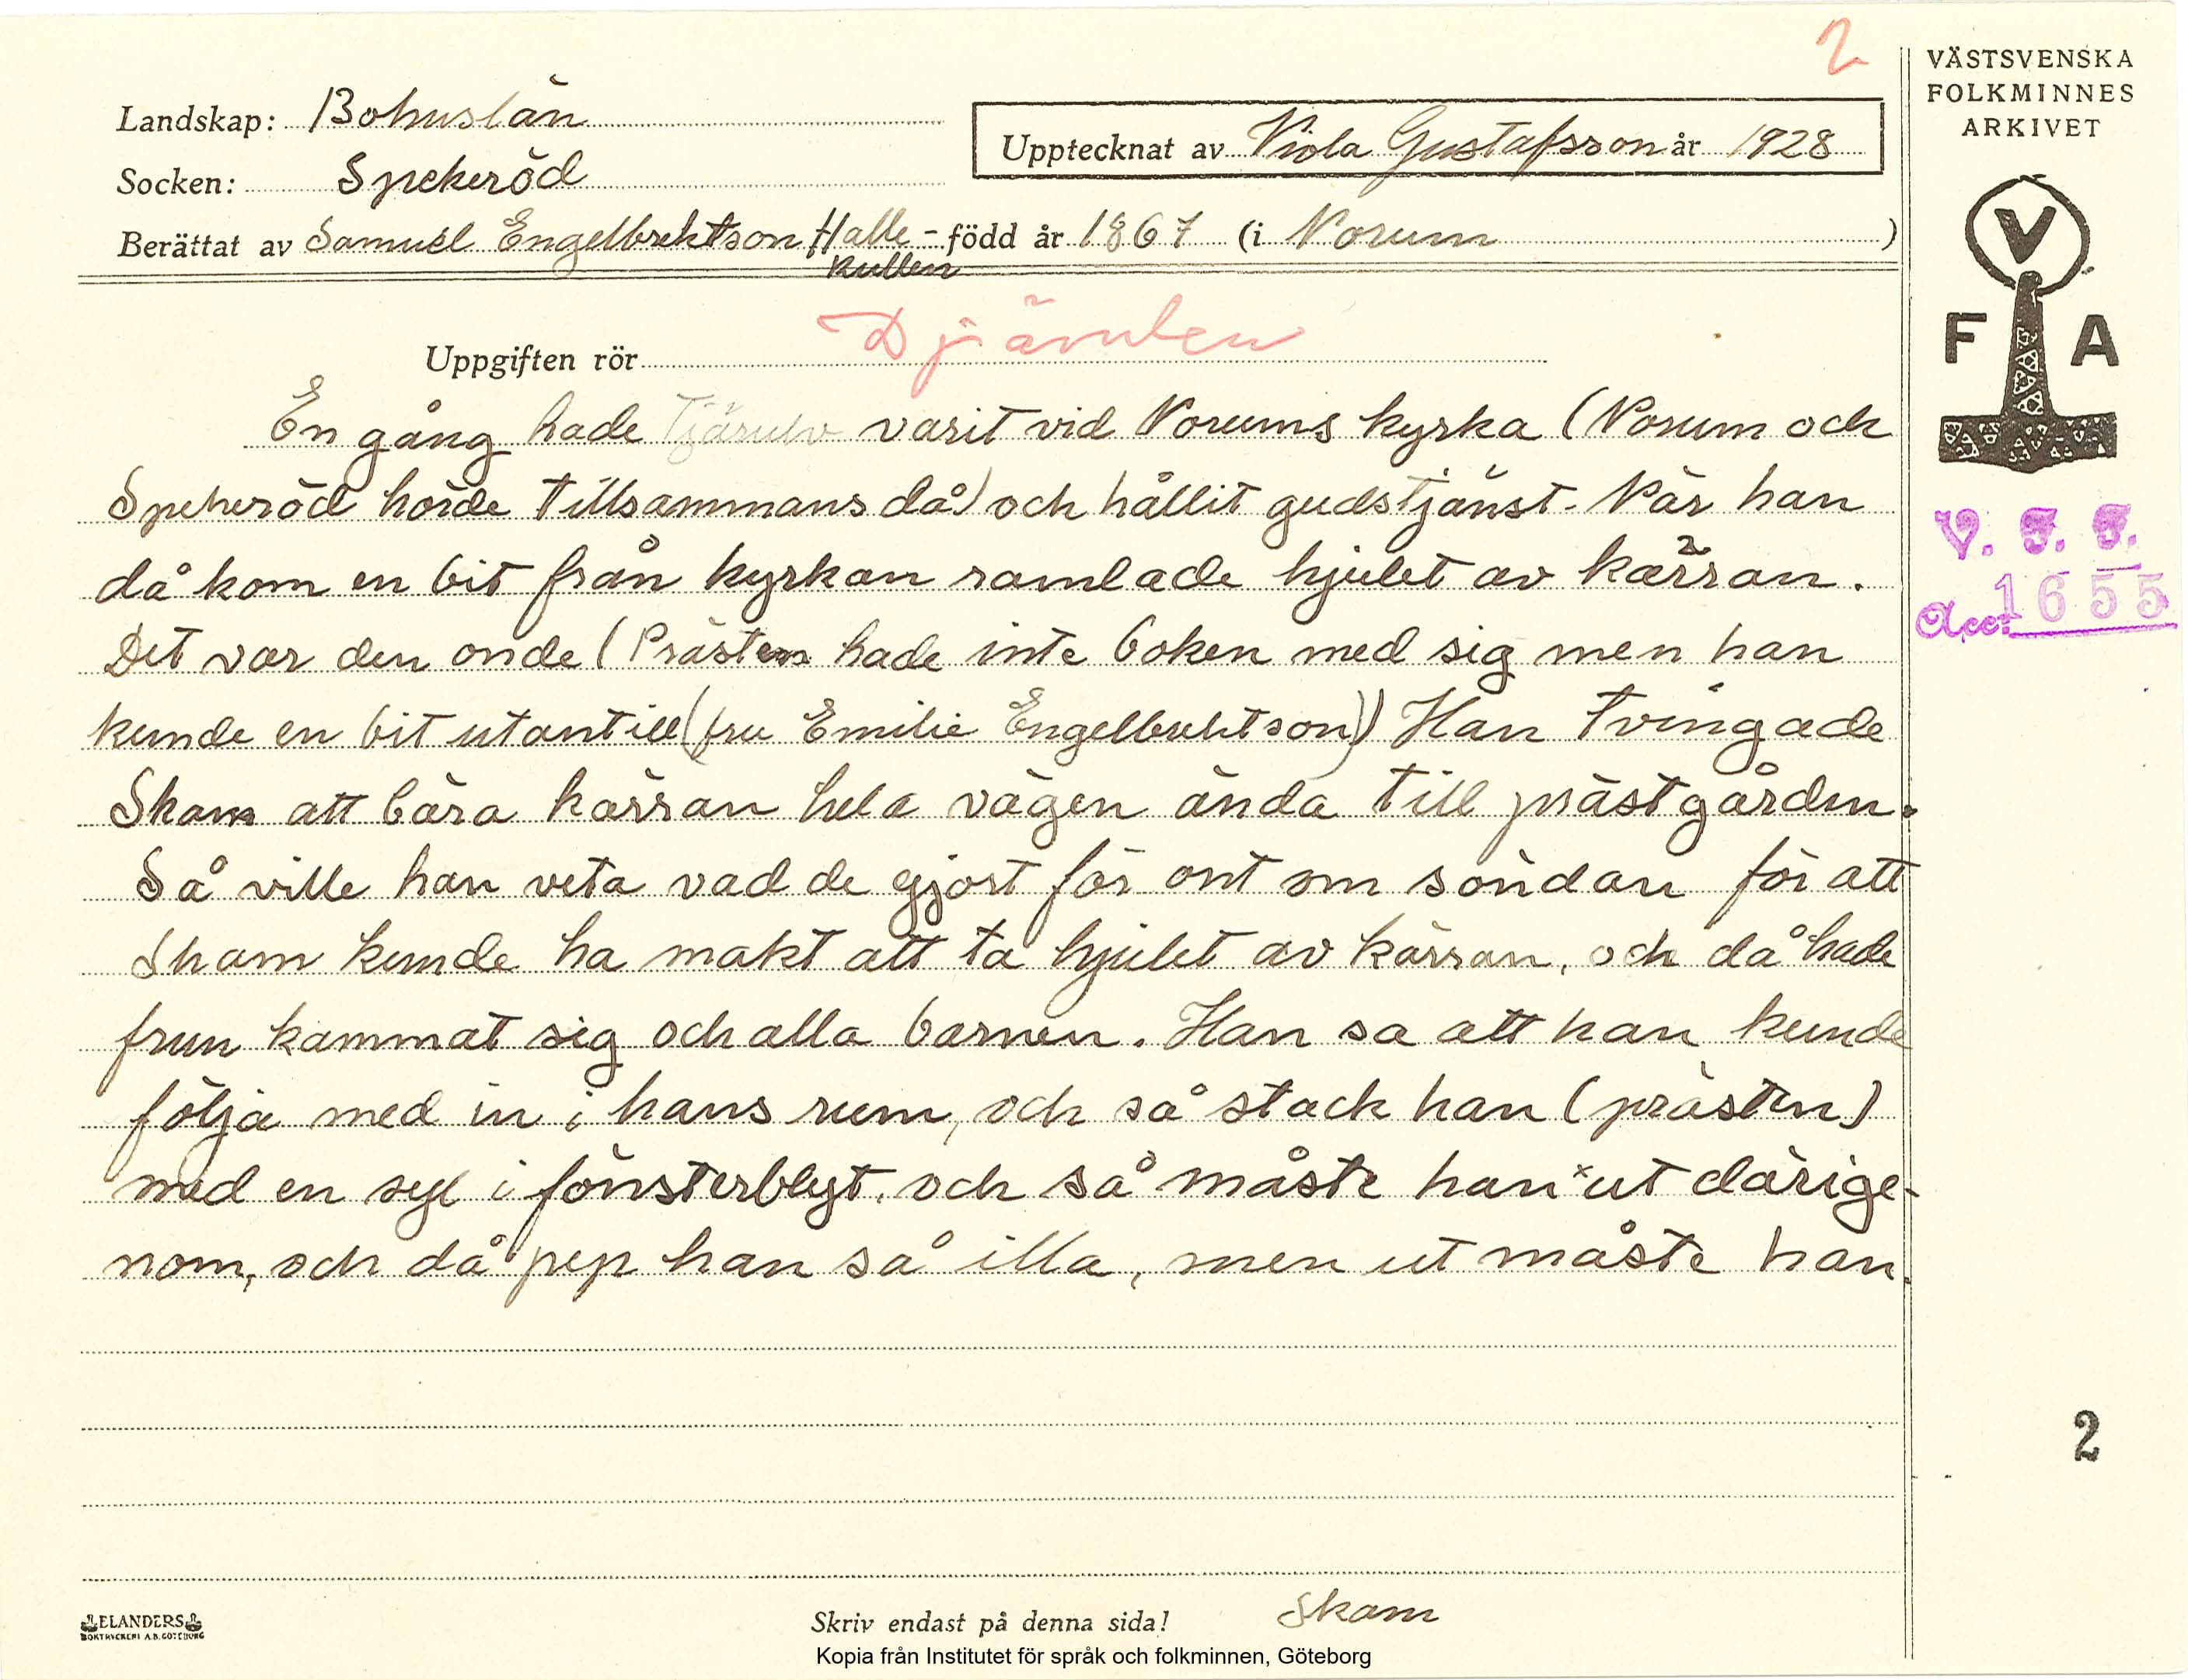 2
VÄSTSVENSKA
FOLKMINNES
ARKIVET
Landskap: Bohuslän
Upptecknat av Viola Gustafsson år 1928
Socken: Spekeröd
Berättat av Samuel Engelbrektson Halle- född år 1867 (i Norum)
kullen
V
F A
Uppgiften rör Djävulen
En gång hade varit vid Norums kyrka (Norum och
Spekeröd hörde tillsammans då) och hållit gudstjänst. När han
då kom en bit från kyrkan ramlade hjulet av kärran.
Det var den onde (Prästen hade inte boken med sig men han
kunde en bit utantill (fru Emilie Engelbrektson)) Han tvingade
Skam att bära kärran hela vägen ända till prästgården.
Så ville han veta vad de gjort för ont om söndan för att
Skam kunde ha makt att ta hjulet av kärran, och då hade
frun kammat sig och alla barnen. Han sa att han kunde
följa med in i hans rum, och så stack han (prästen)
med en syl i fönsterblyt, och så måste han x ut därige-
nom, och då pep han så illa, men ut måste han.
V. F. F.
Acc. 1655
2
ELANDERS
BOKTRYCKERI A.B. GÖTEBORG
Skriv endast på denna sida!
Skam
Kopia från Institutet för språk och folkminnen, Göteborg